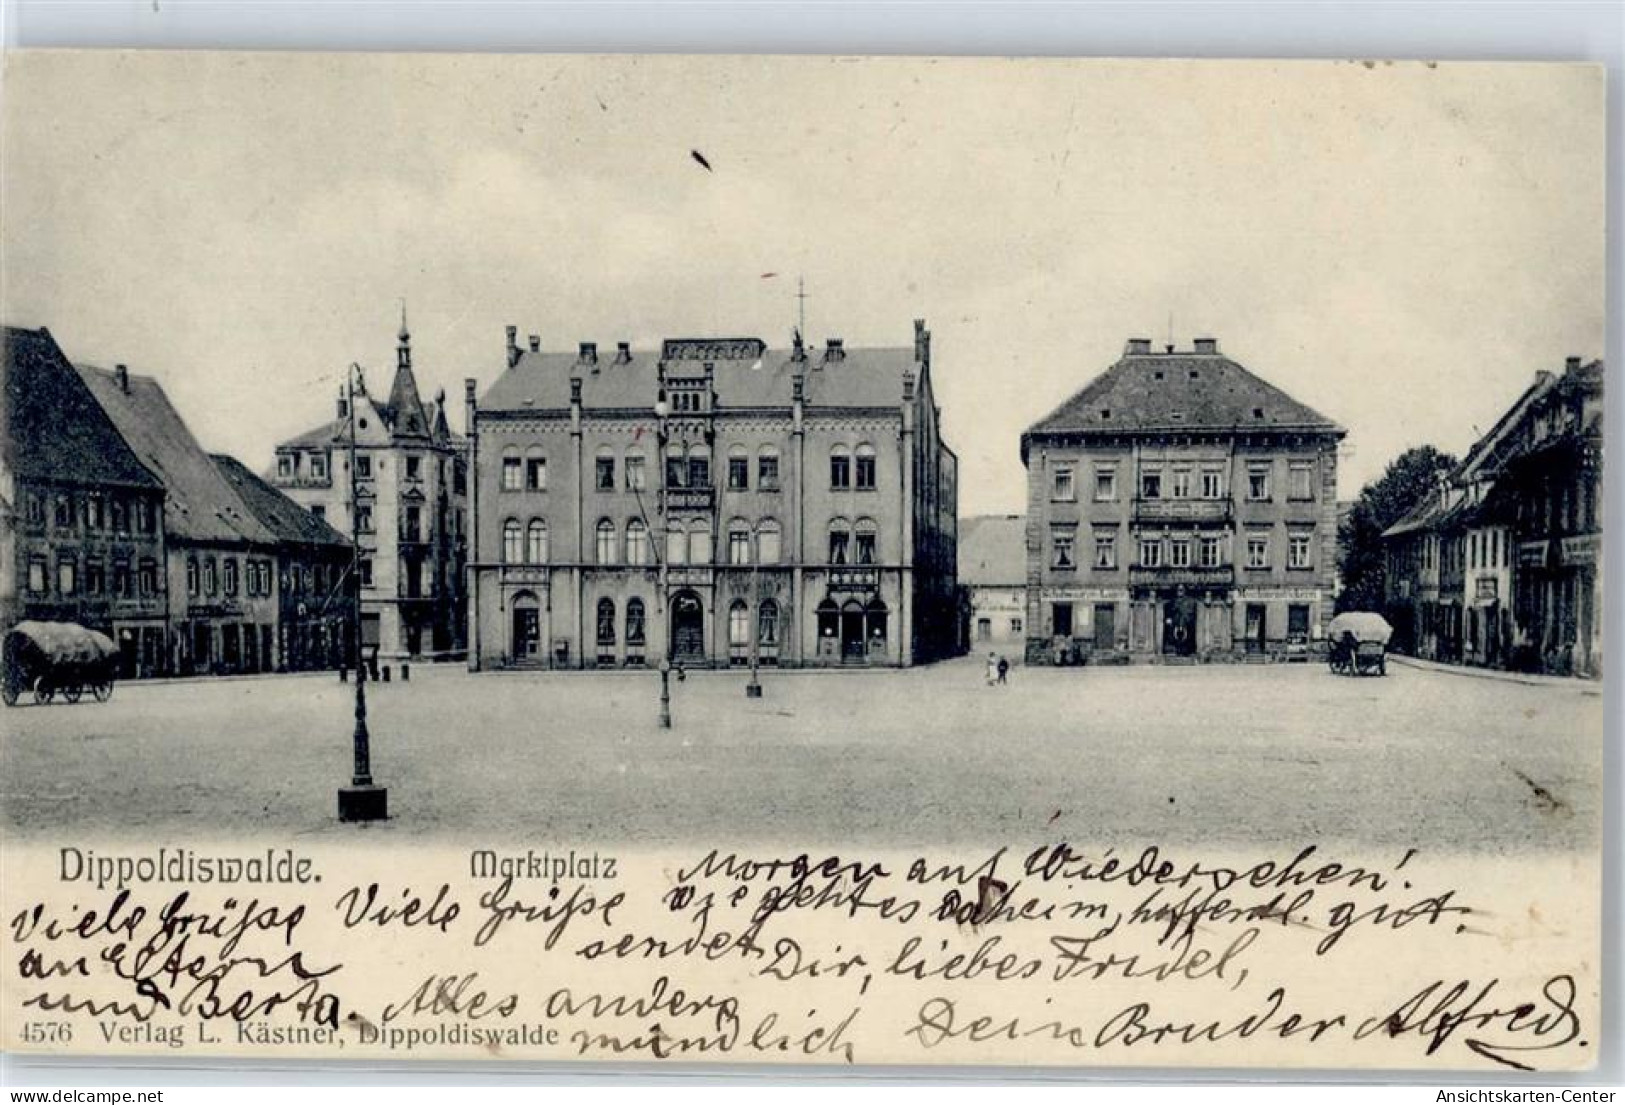 Dippoldiswalde.
Marktplatz
Morgen auf Wiedersehen!
Viele Grüße Viele Grüße wie geht es daheim, hoffentl. gut.
an Eltern
sendet Dir, liebes Fridel,
und Berta. Alles andere
mündlich
Dein Bruder Alfred.
4576 Verlag L. Kästner, Dippoldiswalde
www.delcampe.net
karten_und_mehr
Ansichtskarten-Center